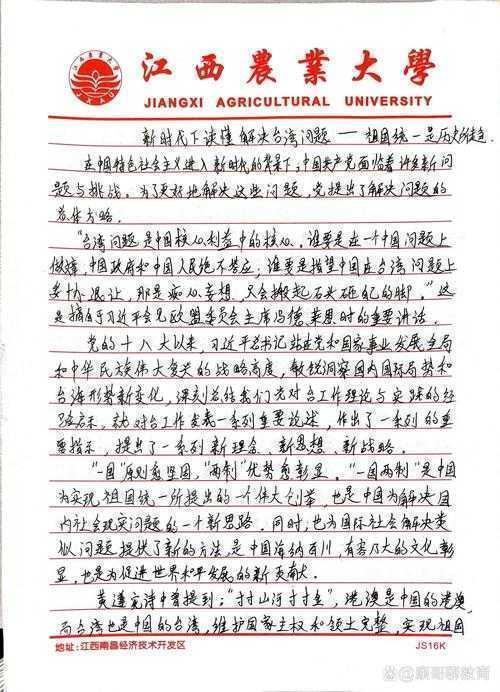 江西農業大學
JIANGXI AGRICULTURAL UNIVERSITY
新时代下读懂解决台湾问题——祖国统一是历史的必
在中国特色社会主义进入新时代的背景下,中国共产党面临着许多新问
题与挑战。为了更好地解决这些问题,党提出了解决问题的
总体方略。
"台湾问题是中国核心利益中的核心,谁要是在一个中国问题上
做文章,中国政府和中国人民绝不答应,谁要是指望中国在台湾问题上
妥协退让,那是痴心妄想,只会搬起石头砸自己的脚。"这
是摘自于习近平会见欧盟委员会主席冯德莱恩时的重要讲话。
党的十八大以来,习近平总书记站在党和国家事业发展全局
和中华民族伟大复兴的战略高度,敏锐洞察国内国际局势和
台海形势新变化,深刻总结我们党对台工作理论与实践的经
验启示,就对台工作发表一系列重要论述,作出了一系列的重
要指示,提出了一系列新理念、新思想、新战略。
"一国"原则愈坚固,"两制"优势愈彰显。"一国两制"是中国
为实现祖国统一所提出的一个伟大创举,也是中国为解决国
内社会现实问题的一个新思路。同时,也为国际社会解决类
似问题提供了新的方法,是中国海纳百川,有容乃大的文化彰
显,也是为促进世界和平发展的新贡献。
黄遵宪诗中曾提到:"寸寸山河寸寸金",港澳是中国的港澳,
而台湾也是中国的台湾,维护国家主权和领土完整,实现祖国
地址:江西南昌经济技术开发区
JS16K